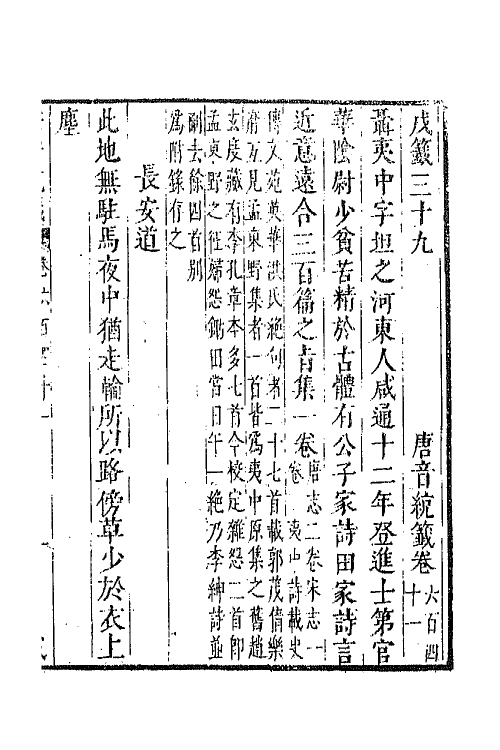 戊籤三十九　唐音統籤卷六百四十一
聶夷中字坦之河東人咸通十二年登進士第官
華陰尉少貧苦精於古體有公子家詩田家詩言
近意遠合三百篇之旨集一卷唐志二卷宋志一卷　夷中詩載史
傳文苑英華洪氏絶句者二十七首載郭茂倩樂
府互見孟東野集者一首皆爲夷中原集之舊趙
玄度藏有李孔章本多七首今校定雜怨二首即
孟東野之征婦怨鋤田當日午一絶乃李紳詩並
刪去餘四首別
爲附錄存之
長安道
此地無駐馬夜中猶走輪所以路傍草少於衣上
塵